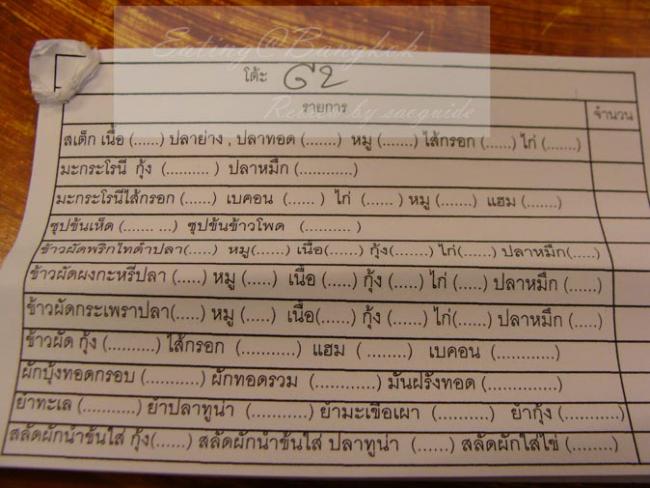 Eating@Bangkok
โต๊ะ ๔๒
Review by sacguide
รายการ
จำนวน
สเต็ก เนื้อ (......) ปลาย่าง , ปลาทอด (.......) หมู (.......) ไส้กรอก (......) ไก่ (.......)
มะกะโรนี กุ้ง (.......... ) ปลาหมึก (............)
มะกะโรนีไส้กรอก (......) เบคอน (...... ) ไก่ (...... ) หมู (.......) แฮม (.......)
ซุปข้นเห็ด (....... ...) ซุปข้นข้าวโพด (.......... )
ข้าวผัดพริกไทดำปลา (.....) หมู(......) เนื้อ(......) กุ้ง(.......) ไก่(......) ปลาหมึก(.....)
ข้าวผัดผงกะหรี่ปลา (.....) หมู (.....) เนื้อ (.....) กุ้ง (.....) ไก่ (.....) ปลาหมึก (......)
ข้าวผัดกระเพราปลา(.....) หมู (.....) เนื้อ(......) กุ้ง (......) ไก่(......) ปลาหมึก (.....)
ข้าวผัด กุ้ง (..........) ไส้กรอก (...........) แฮม ( ........) เบคอน (............)
ผักบุ้งทอดกรอบ (...........) ผักทอดรวม (............) มันฝรั่งทอด (.............)
ยำทะเล (...........) ยำปลาทูน่า (............) ยำมะเขือเผา (...........) ยำกุ้ง (............)
สลัดผักน้ำข้นใส่ กุ้ง(......) สลัดผักน้ำข้นใส่ ปลาทูน่า (......) สลัดผักใส่ไข่ (........)